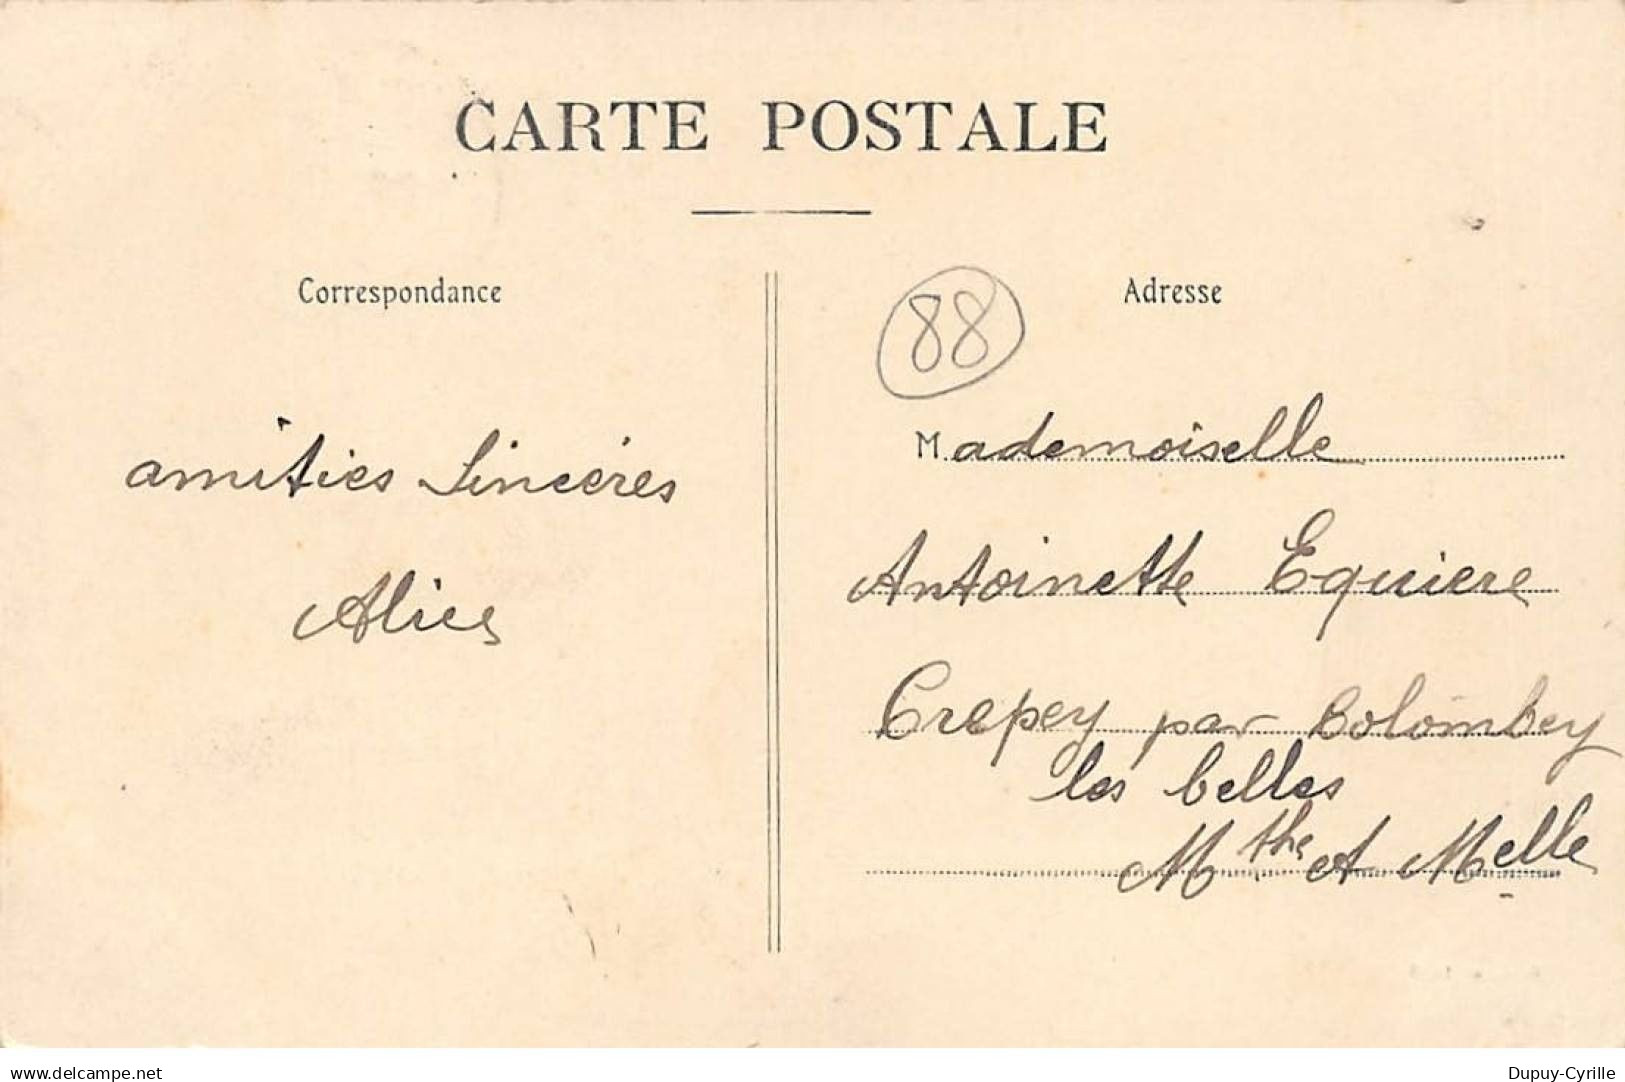 CARTE POSTALE
Correspondance
amitiés Sincéres
Alice
88
Adresse
Mademoiselle
Antoinette Equiere
Crepey par Colombey
les belles
Mthe et Melle
www.delcampe.net
Dupuy-Cyrille